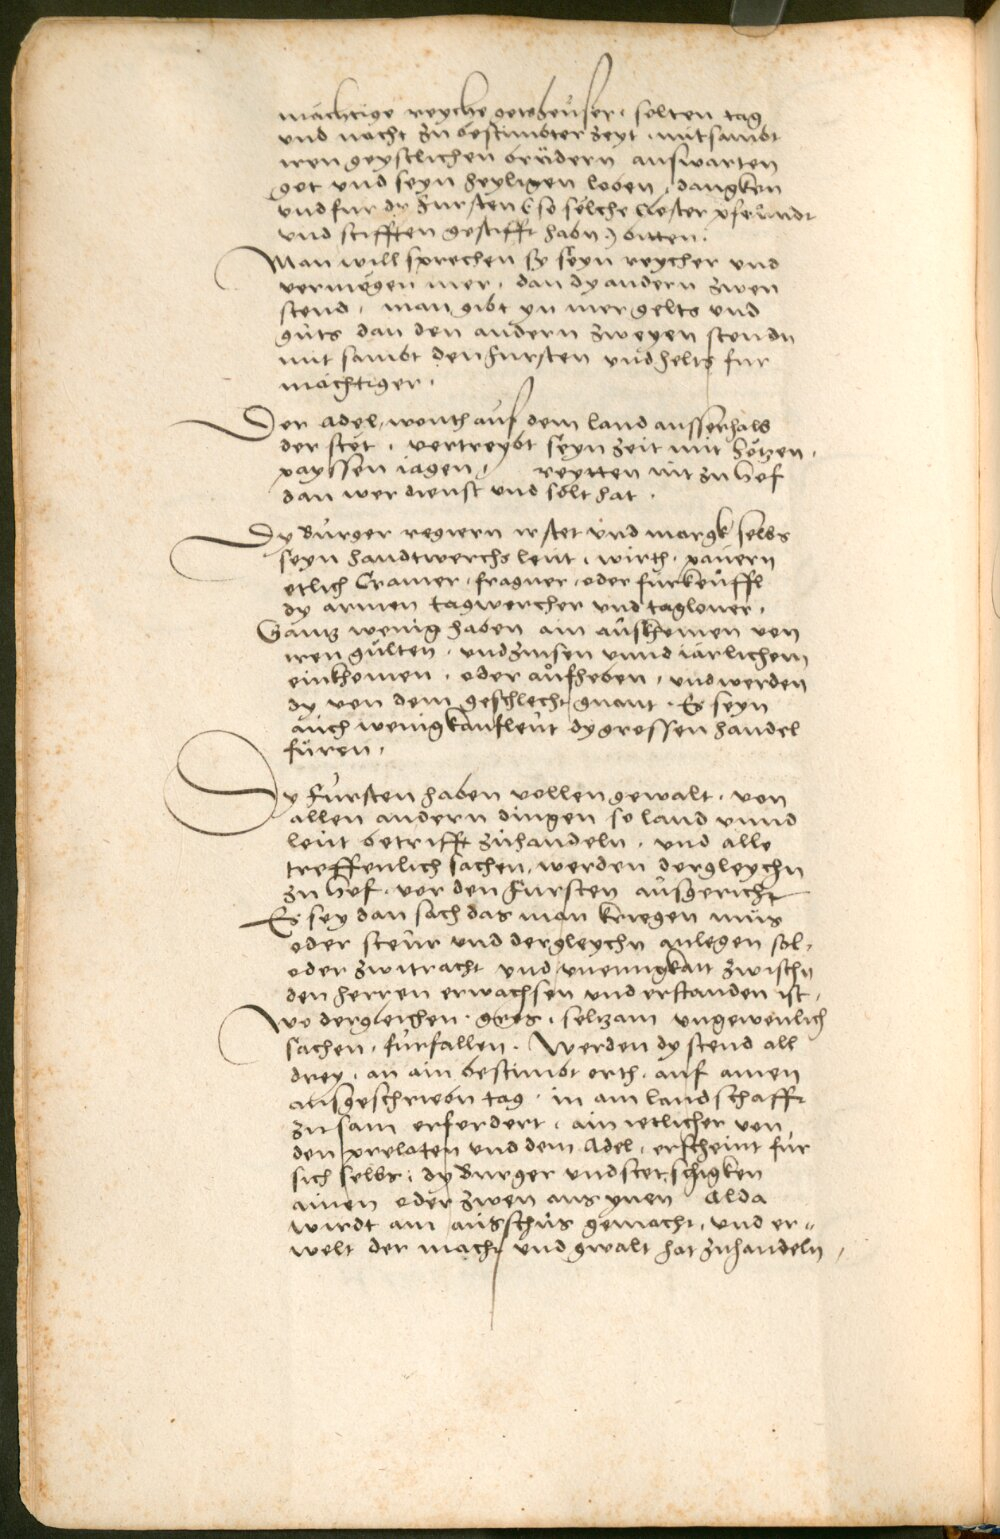 mächtige reyche gotsheuser, solten tag
und nacht zu bestimbter zeyt, mitsambt
iren geystlichen brüdern auswarten
got und seyn heyligen loben, dangken
und fur dy Fursten (so sölche closter pfründt
und stifften gestifft habn) bitten.
Man will sprechen sy seyn reycher und
vermögen mer, dan dy andern zwen
stend, man gibt yn mer gelts und
guts dan den andern zweyen stendn
mit sambt den Fursten und helts fur
mächtiger.
Der Adel, wonth auf dem land ausserhalb
der stet, vertreybt seyn zeit mit hetzen,
payssen iagen, reytten nit zu Hof
dan wer dienst und solt hat.
Dy Burger regiern ir stet und margk selbs
seyn handtwerchs leut, wirth, pauern
etlich Cramer, fragner, oder fürkeuffl
dy armen tagwercher und tagloner,
Gantz wenig haben ain auskhomen von
iren gulten, und zinsen unnd iärlichem
einkhomen, oder aufheben, und werden
dy von dem geschlecht gnant. Es seyn
auch wenig kaufleut dy grossen handel
füren,
Dy Fursten haben vollen gewalt, von
allen andern dingen so land unnd
leut betrifft zuhandeln, und alle
treffenlich sachen, werden dergleychn
zu Hof, vor den Fursten ausgericht
Es sey dan sach das man kriegen mus
oder steur und dergleychn anlegen sol,
oder zwitracht und unennigkait zwischn
den herren erwachsen und erstanden ist,
Wo dergleichen, gros, seltzam ungewenlich
sachen, furfallen. Werden dy stend all
drey, an ain bestimbt orth, auf ainen
ausgeschriebn tag, in ain landschafft
zusam erfordert, ain ietlicher von
den prelaten und dem Adel, erscheint für
sich selbs, dy Burger und stet schigken
ainen oder zwen aus ynen Alda
wirdt ain ausschus gemacht, und er=
welt der macht und gwalt hat zuhandeln,